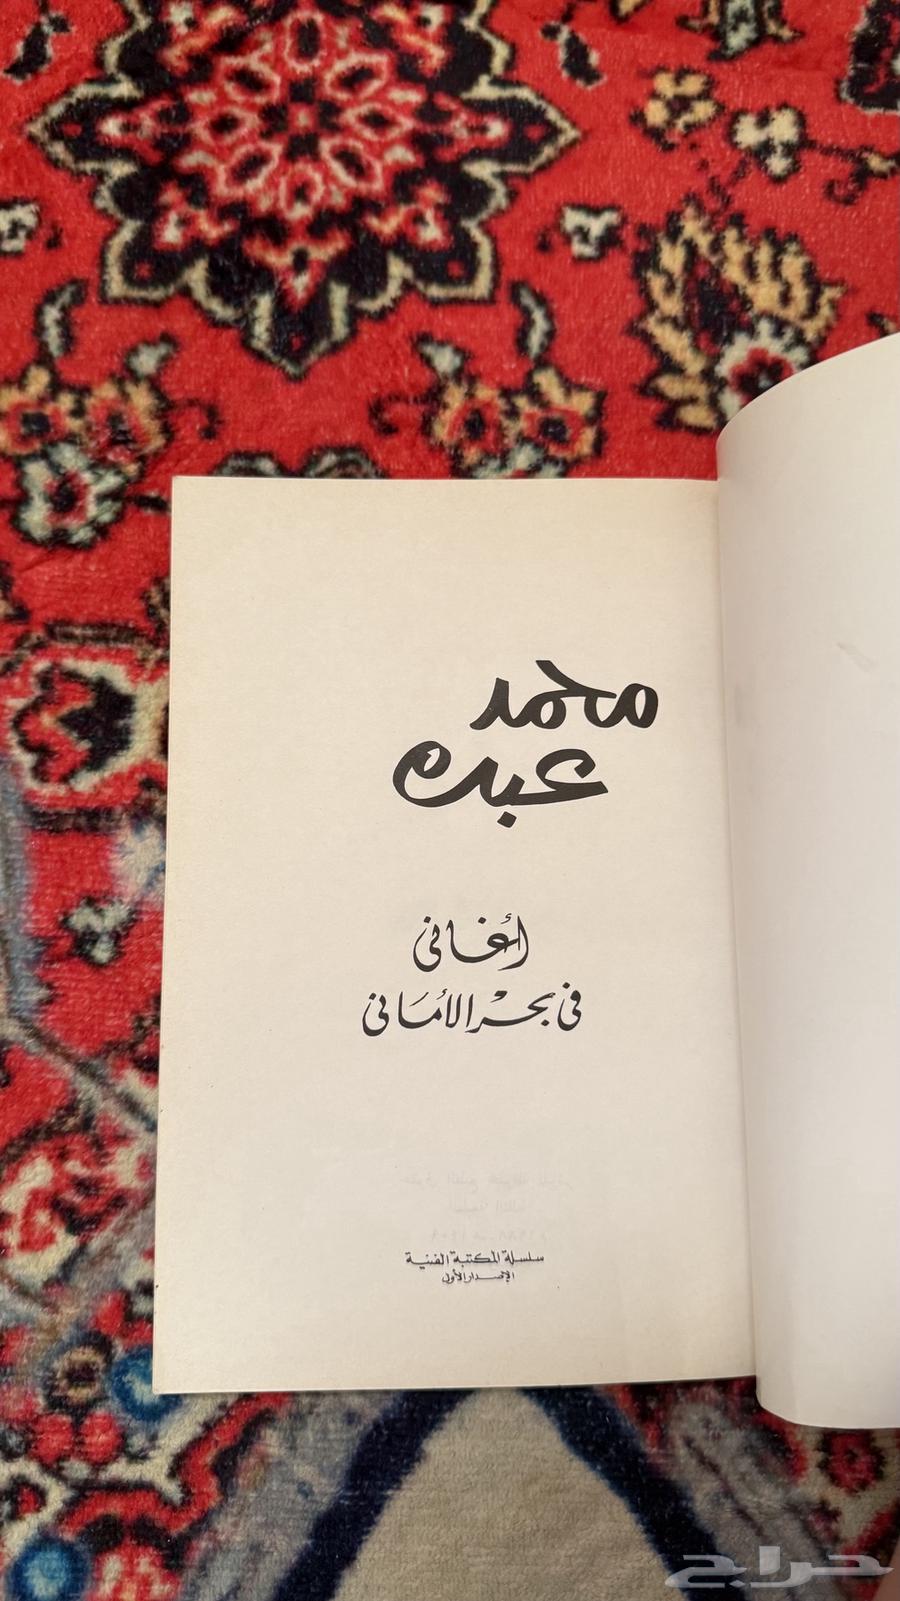 محمد
عبده
أغاني
في بحر الأماني
سلسلة المكتبة الفنية
الإصدار الأول
حراج